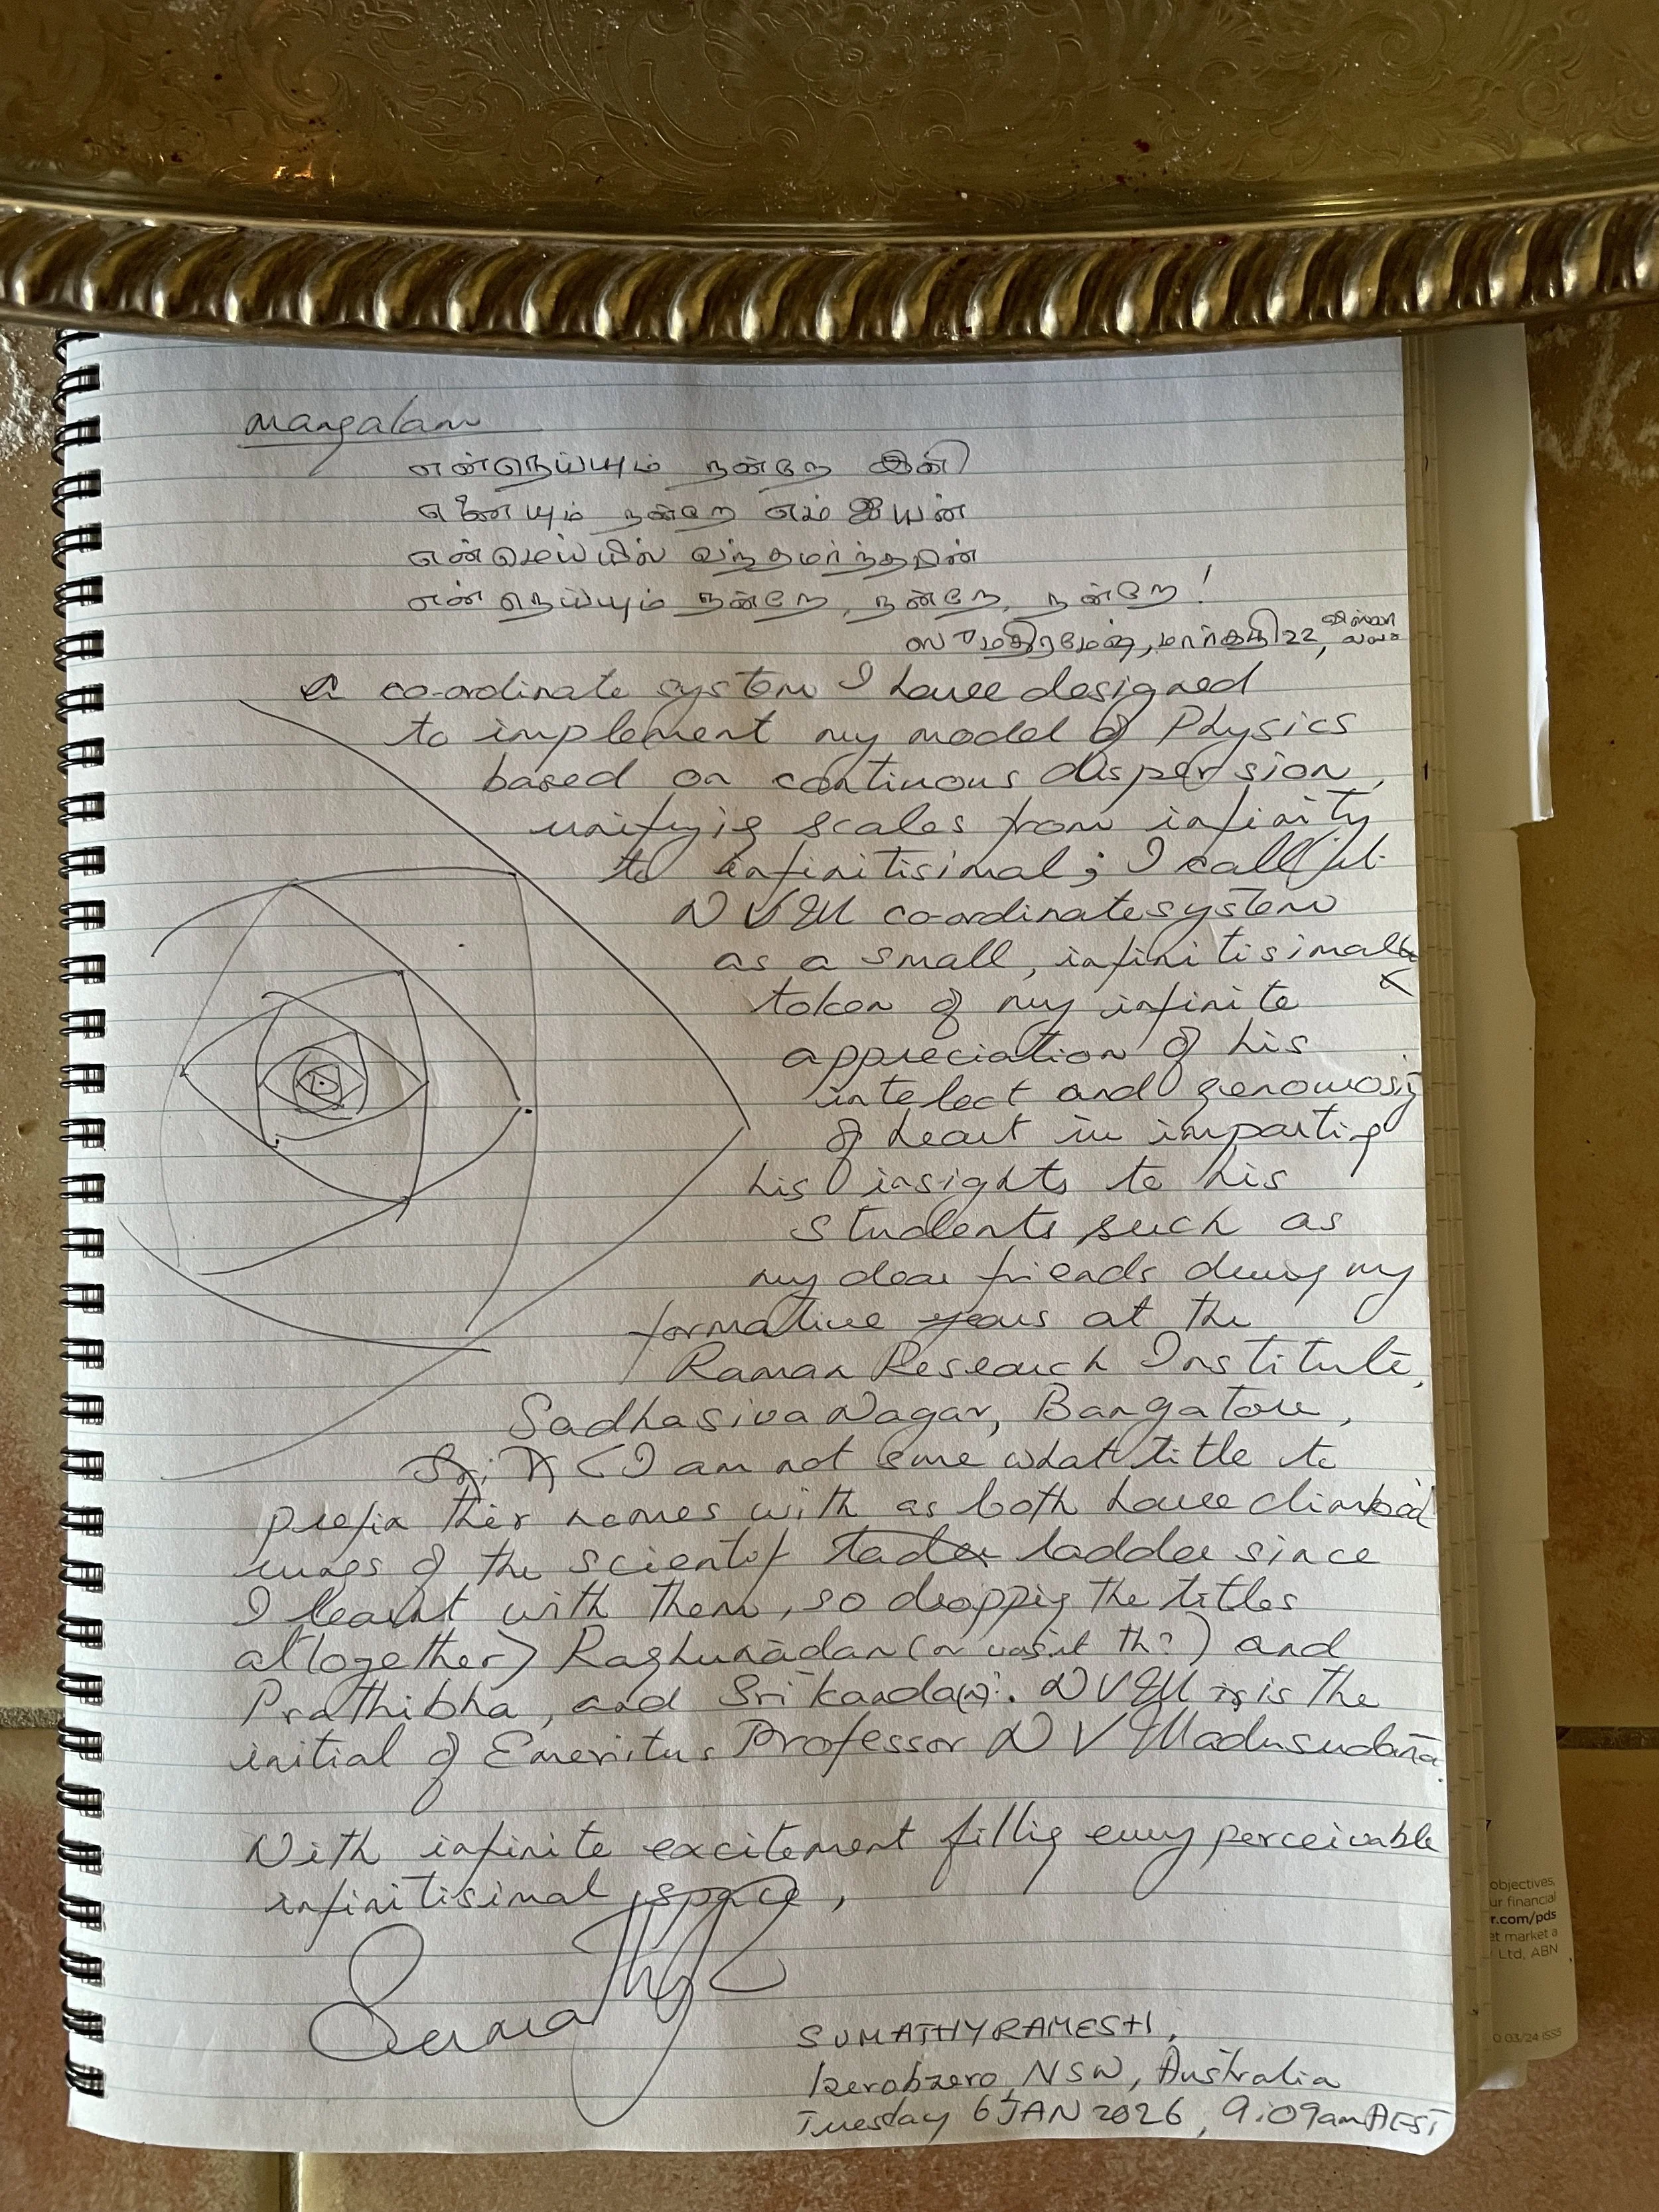 Mangalam
என்செய்யும் நன்றே இனி
எனையும் நன்றே எம் ஐயன்
என்மெய்யில் வந்தமர்ந்தபின்
என் செய்யும் நன்றே, நன்றே, நன்றே!
மார்கழி 22,
a co-ordinate system I have designed
to implement my model of Physics
based on continuous dispersion,
unifyig scales from infinity
to infinitisimal; I call it
NVM co-ordinate system
as a small, infinitisimal
token of my infinite
appreciation of his
intelect and generousity
of heart in impartig
his insights to his
students such as
my dear friends during my
formative years at the
Raman Research Institute,
Sadhasiva Nagar, Bangalore,
(I am not sure what title to
prefix their names with as both have climbed
rungs of the scientif ladder since
I learnt with them, so droppig the titles
altogether) Raghunadan (or was it th?) and
Prathibha, and Srikanda(n). NVM is the
initial of Emeritus Professor N V Madusudana.
With infinite excitement fillig every perceivable
infinitisimal space,
Sumathy R
SUMATHY RAMESH,
NSW, Australia
Tuesday 6 JAN 2026, 9:09am AEST
objectives,
ur financial
r.com/pds
et market a
Ltd, ABN
03/24 ISS